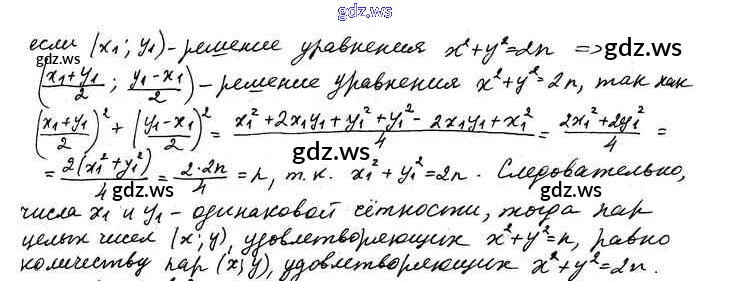 gdz.ws
если (x₁; y₁) - решение уравнения x²+y²=2n =>
gdz.ws
((x₁+y₁)/2 ; (y₁-x₁)/2) - решение уравнения x²+y²=2n, так как
((x₁+y₁)/2)² + ((y₁-x₁)/2)² = (x₁²+2x₁y₁+y₁²+y₁²-2x₁y₁+x₁²)/4 = (2x₁²+2y₁²)/4 =
gdz.ws
= 2(x₁²+y₁²)/4 = 2·2n/4 = n, т.к. x₁²+y₁²=2n. Следовательно,
gdz.ws
числа x₁ и y₁ - одинаковой чётности, тогда пар
целых чисел (x; y), удовлетворяющих x²+y²=n, равно
количеству пар (x; y), удовлетворяющих x²+y²=2n.
gdz.ws